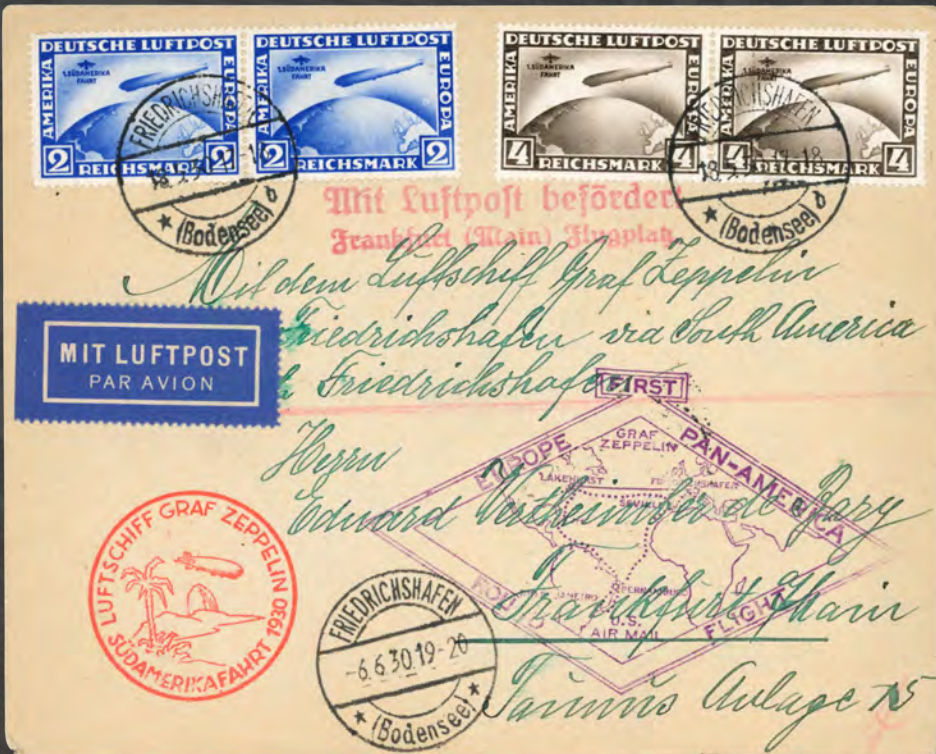 DEUTSCHE LUFTPOST
AMERIKA
EUROPA
1.SÜDAMERIKA
FAHRT
2 REICHSMARK 2
DEUTSCHE LUFTPOST
AMERIKA
EUROPA
1.SÜDAMERIKA
FAHRT
2 REICHSMARK 2
DEUTSCHE LUFTPOST
AMERIKA
EUROPA
1.SÜDAMERIKA
FAHRT
4 REICHSMARK 4
DEUTSCHE LUFTPOST
AMERIKA
EUROPA
1.SÜDAMERIKA
FAHRT
4 REICHSMARK 4
FRIEDRICHSHAFEN
(Bodensee) b
FRIEDRICHSHAFEN
(Bodensee) b
Mit Luftpost befördert
Frankfurt (Main) Flugplatz
Mit dem Luftschiff Graf Zeppelin
Friedrichshafen via South America
Friedrichshafen
MIT LUFTPOST
PAR AVION
FIRST
EUROPE
PAN-AMERICA
FLIGHT
GRAF
ZEPPELIN
LAKEHURST
SEVILLE
U.S.
AIR MAIL
Herrn
Eduard de Bary
Frankfurt Main
Taunus Anlage 15
LUFTSCHIFF GRAF ZEPPELIN
SÜDAMERIKAFAHRT 1930
FRIEDRICHSHAFEN
-6.6.30.19-20
(Bodensee)